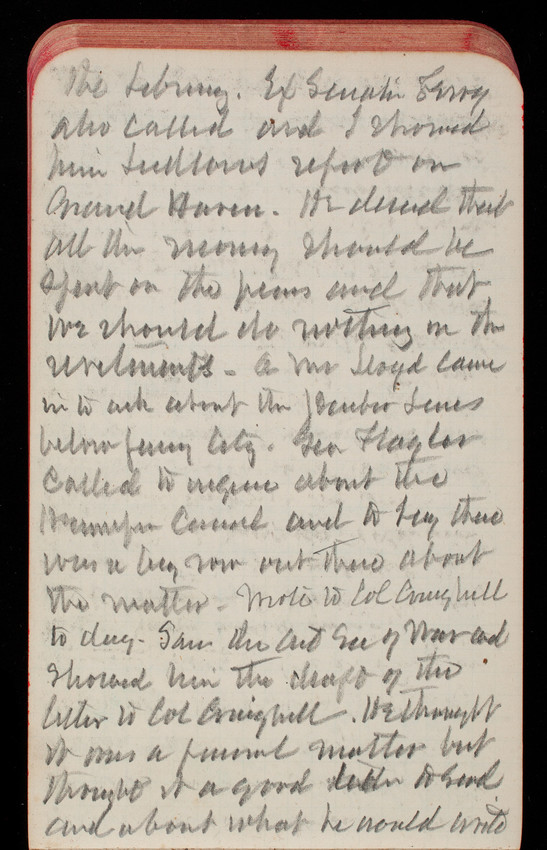 the . Ex Senator Ferry
also called and I showed
him Ludlows report on
Grand Haven. He desired that
all the money should be
spent on the piers and that
we should do nothing on the
revetments - A Mr Lloyd came
in to ask about the Harbor Lines
below City. Geo Flagler
called to inquire about the
Hennepin Canal and to say there
was a big row out there about
the matter - Wrote to Col Craighill
to day - Saw the Act Sec of War and
showed him the draft of the
letter to Col Craighill. He thought
it was a matter but
thought it a good letter to send
and about what he would write